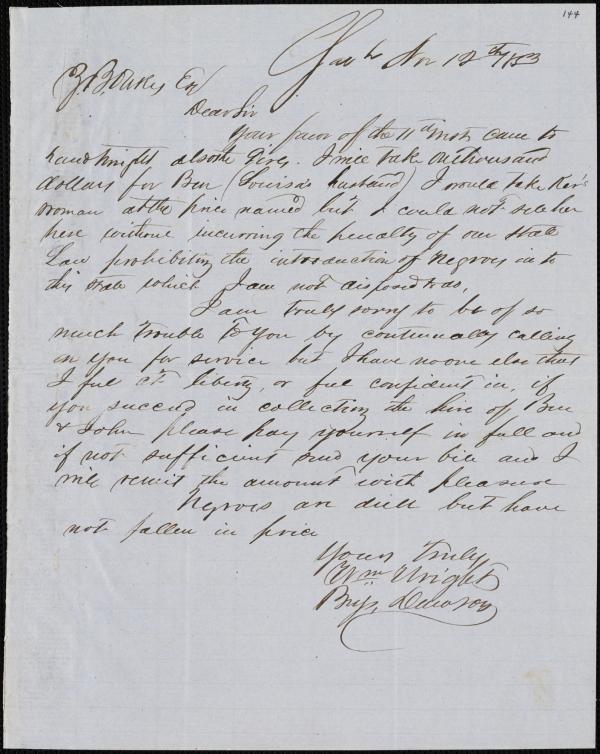 144
Savh Nov 12th /53
Z. B. Oakes Esq
Dear Sir
Your favor of the 11th inst. came to
hand tonight also the Girl. I will take one thousand
dollars for Ben (Louisa's husband) I would take
woman at the price named but I could not sell her
here without incurring the penalty of our State
Law prohibiting the introduction of Negroes in to
this State which I am not disposed to do,
I am truly sorry to be of so
much trouble to you by continually calling
on you for service but I have no one else that
I feel at liberty, or feel confident in, if
you succeed in collecting the hire of Ben
& John please pay yourself in full and
if not sufficient send your bill and I
will remit the amount with pleasure
Negroes are dull but have
not fallen in price
Yours Truly
Wm Wright